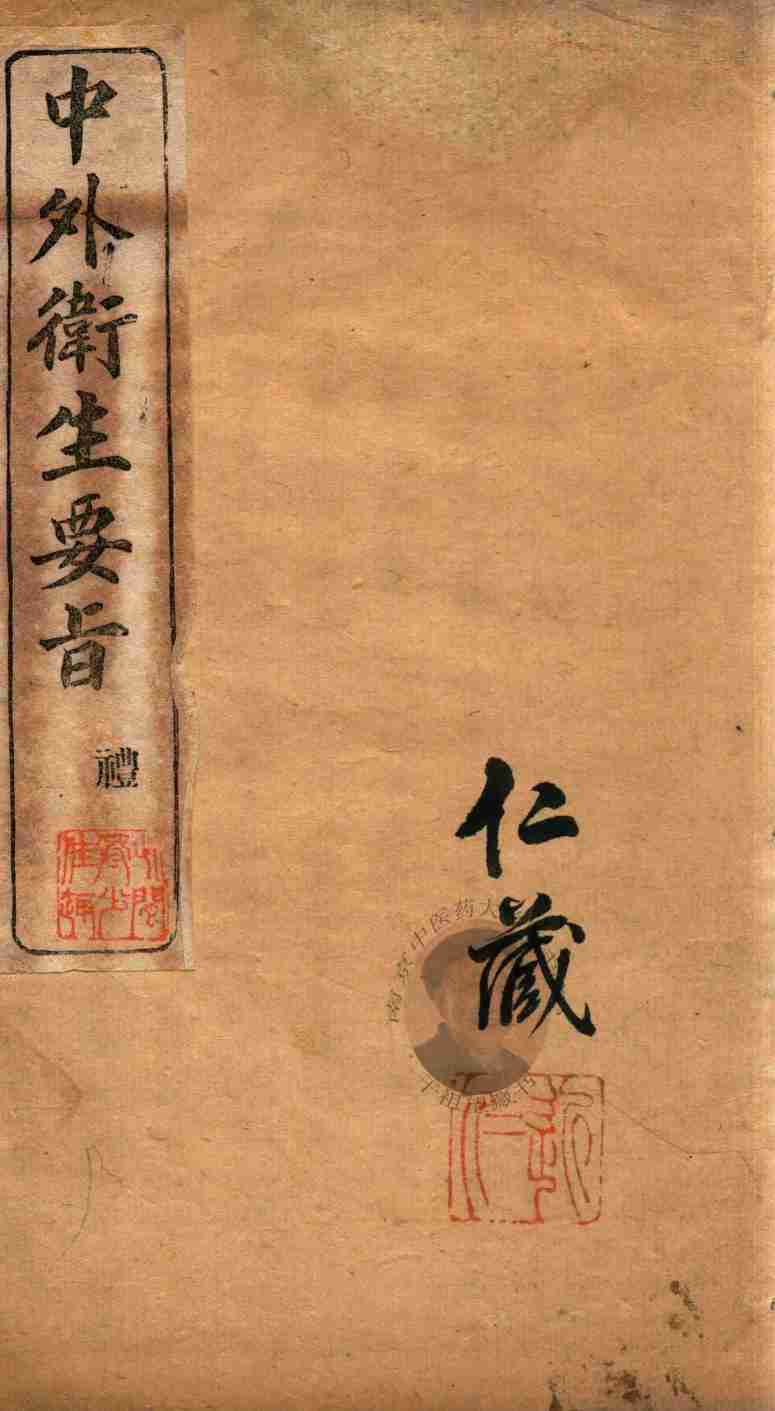 中外衛生要旨
禮
仁藏
南京中医药大